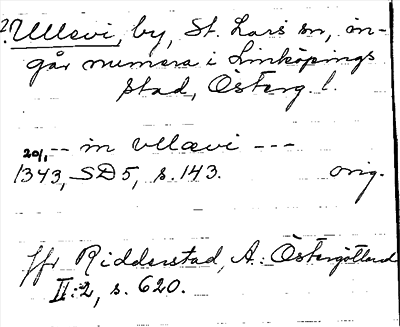 2. Ullevi, by, St. Lars sn, in-
går numera i Linköpings
stad, Österg. l.
20/1 -- in vllævi ---
1343, SD 5, s. 143. orig.
Jfr Ridderstad, A.: Östergötland
II:2, s. 620.